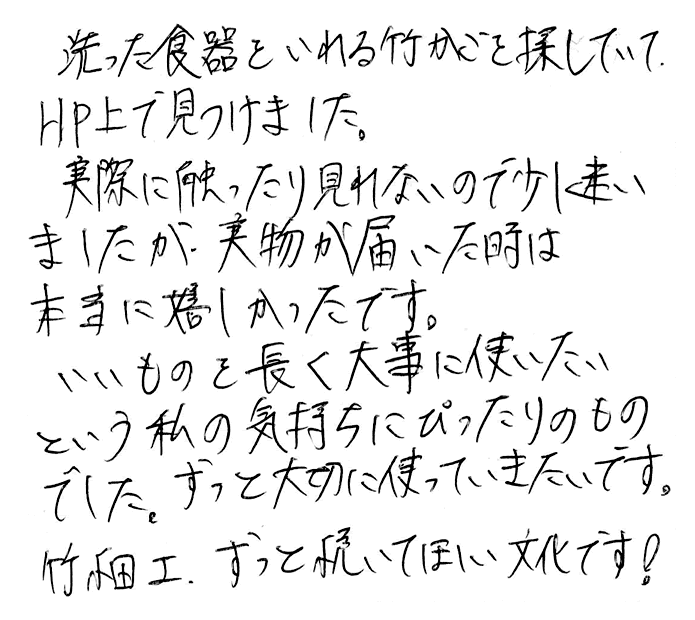 洗った食器をいれる竹かごを探していて、
HP上で見つけました。
実際に触ったり見れないので少し迷い
ましたが、実物が届いた時は
本当に嬉しかったです。
いいものを長く大事に使いたい
という私の気持ちにぴったりのもの
でした。ずっと大切に使っていきたいです。
竹細工、ずっと続いてほしい文化です!